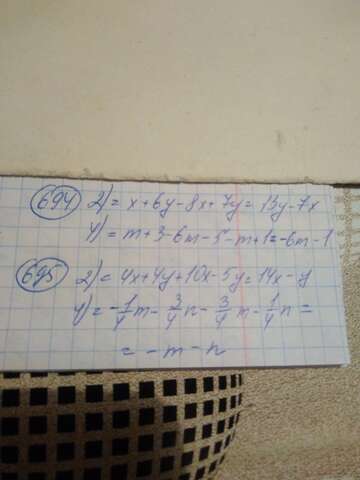 694 2) = x + 6y - 8x + 7y = 13y - 7x
4) = m + 3 - 6m - 5 - m + 1 = -6m - 1
695 2) = 4x + 4y + 10x - 5y = 14x - y
4) = -1/4 m - 3/4 n - 3/4 m - 1/4 n =
= - m - n